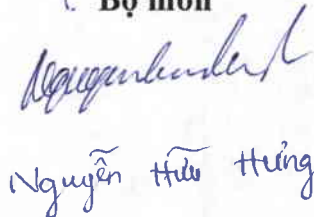 Bộ môn
Nguyễn Hữu Hưng